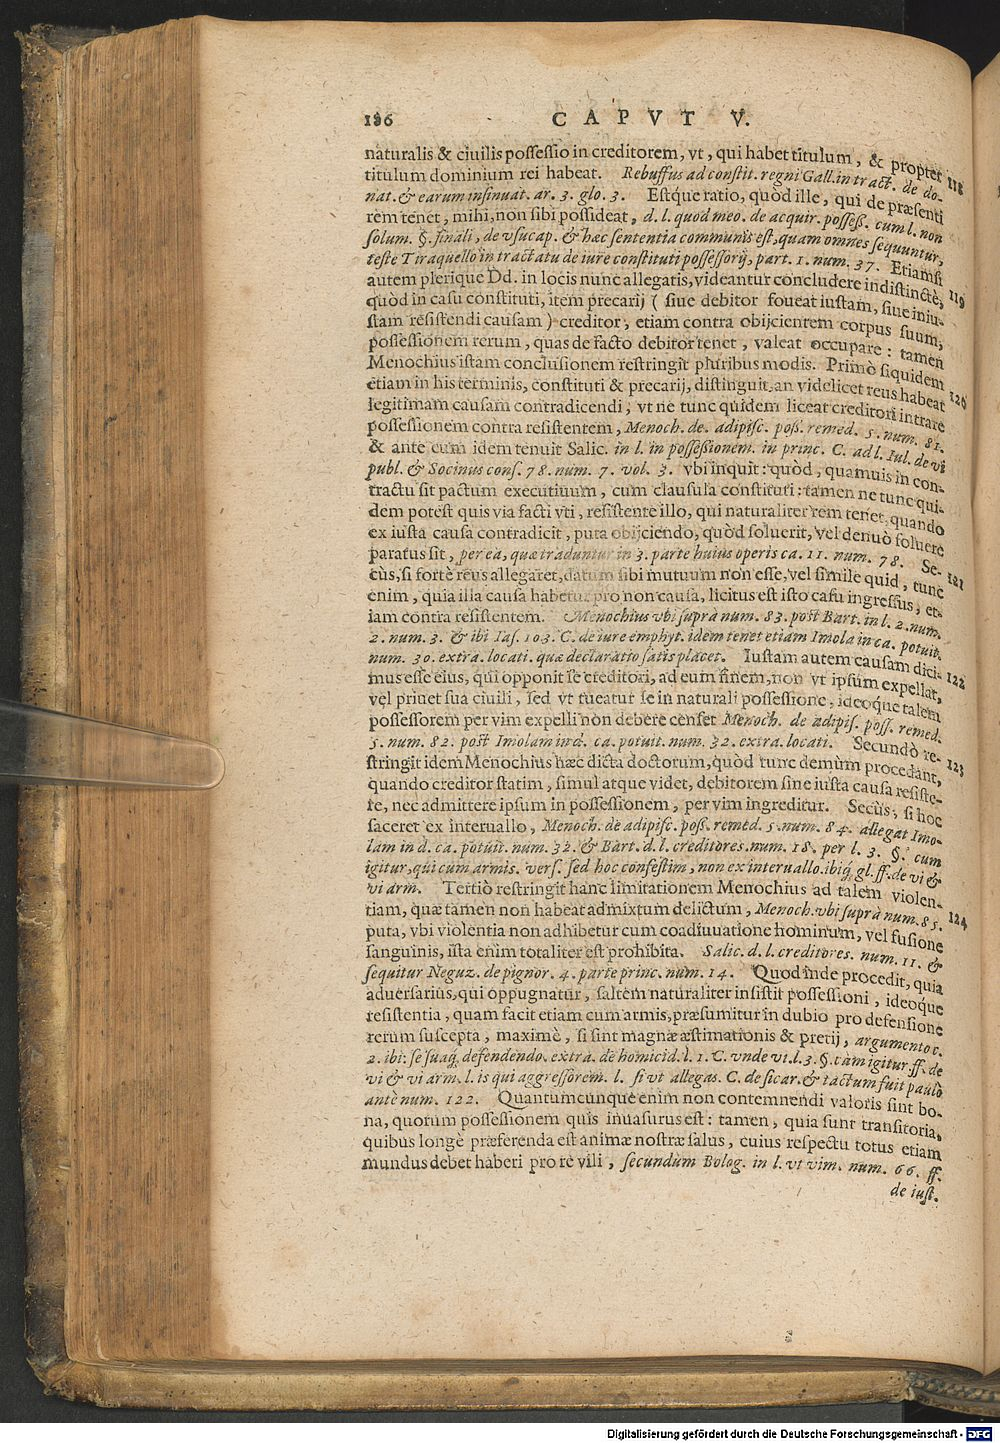 186 CAPVT V.
naturalis & ciuilis possessio in creditorem, vt, qui habet titulum, & propter 118
titulum dominium rei habeat. Rebuffus ad constit. regni Gall. in tract. de do-
nat. & earum insinuat. ar. 3. glo. 3. Estque ratio, quòd ille, qui de præsenti
rem tenet, mihi, non sibi possideat, d. l. quod meo. de acquir. posseß. cum l. non
solum. §. finali, de vsucap. & hæc sententia communis est, quam omnes sequuntur,
teste Tiraquello in tractatu de iure constituti possessorij, part. 1. num. 37. Etiamsi
autem plerique Dd. in locis nunc allegatis, videantur concludere indistinctè, 119
quòd in casu constituti, item precarij ( siue debitor foueat iustam, siue iniu-
stam resistendi causam ) creditor, etiam contra obijcientem corpus suum,
possessionem rerum, quas de facto debitor tenet, valeat occupare: tamen
Menochius istam conclusionem restringit pluribus modis. Primò siquidem
etiam in his terminis, constituti & precarij, distinguit, an videlicet reus habeat 120
legitimam causam contradicendi, vt ne tunc quidem liceat creditori intrare
possessionem contra resistentem, Menoch. de. adipisc. poß. remed. 5. num. 81.
& ante eum idem tenuit Salic. in l. in possessionem. in princ. C. ad l. Iul. de vi
publ. & Socinus cons. 78. num. 7. vol. 3. vbi inquit: quòd, quamuis in con-
tractu sit pactum executiuum, cum clausula constituti: tamen ne tunc qui-
dem potest quis via facti vti, resistente illo, qui naturaliter rem tenet, quando
ex iusta causa contradicit, puta obijciendo, quòd soluerit, vel denuò soluere
paratus sit, per ea, quæ traduntur in 3. parte huius operis ca. 11. num. 78. Se-
cùs, si fortè reus allegaret, datum sibi mutuum non esse, vel simile quid, tunc 121
enim, quia illa causa habetur pro non causa, licitus est isto casu ingressus, et-
iam contra resistentem. Menochius vbi suprà num. 83. post Bart. in l. 2. num.
2. num. 3. & ibi Ias. 103. C. de iure emphyt. idem tenet etiam Imola in ca. potuit.
num. 30. extra. locati. quæ declaratio satis placet. Iustam autem causam dici-
mus esse eius, qui opponit se creditori, ad eum finem, non vt ipsum expellat, 122
vel priuet sua ciuili, sed vt tueatur se in naturali possessione, ideoque talem
possessorem per vim expelli non debere censet Menoch. de adipis. poss. remed.
5. num. 82. post Imolam in d. ca. potuit. num. 32. extra. locati. Secundò re-
stringit idem Menochius hæc dicta doctorum, quòd tunc demùm procedant, 123
quando creditor statim, simul atque videt, debitorem sine iusta causa resiste-
re, nec admittere ipsum in possessionem, per vim ingreditur. Secùs, si hoc
faceret ex interuallo, Menoch. de adipisc. poß. remed. 5. num. 84. allegat Imo-
lam in d. ca. potuit. num. 32. & Bart. d. l. creditores. num. 18. per l. 3. §. cum
igitur, qui cum armis. vers. sed hoc confestim, non ex interuallo. ibiq́. gl. ff. de vi &
vi arm. Tertiò restringit hanc limitationem Menochius ad talem violen-
tiam, quæ tamen non habeat admixtum delictum, Menoch. vbi suprà num. 85. 124
puta, vbi violentia non adhibetur cum coadiuuatione hominum, vel fusione
sanguinis, ista enim totaliter est prohibita. Salic. d. l. creditores. num. 11. &
sequitur Neguz. de pignor. 4. parte princ. num. 14. Quod inde procedit, quia
aduersarius, qui oppugnatur, saltem naturaliter insistit possessioni, ideoque
resistentia, quam facit etiam cum armis, præsumitur in dubio pro defensione
rerum suscepta, maximè, si sint magnæ æstimationis & pretij, argumento c.
2. ibi: se suaq́. defendendo. extra. de homicid. l. 1. C. vnde vi. l. 3. §. cùm igitur. ff. de
vi & vi arm. l. is qui aggressorem. l. si vt allegas. C. de sicar. & tactum fuit paulò
antè num. 122. Quantumcunque enim non contemnendi valoris sint bo-
na, quorum possessionem quis inuasurus est: tamen, quia sunt transitoria,
quibus longè præferenda est animæ nostræ salus, cuius respectu totus etiam
mundus debet haberi pro re vili, secundum Bolog. in l. vt vim. num. 66. ff.
de iust.
Digitalisierung gefördert durch die Deutsche Forschungsgemeinschaft - DFG